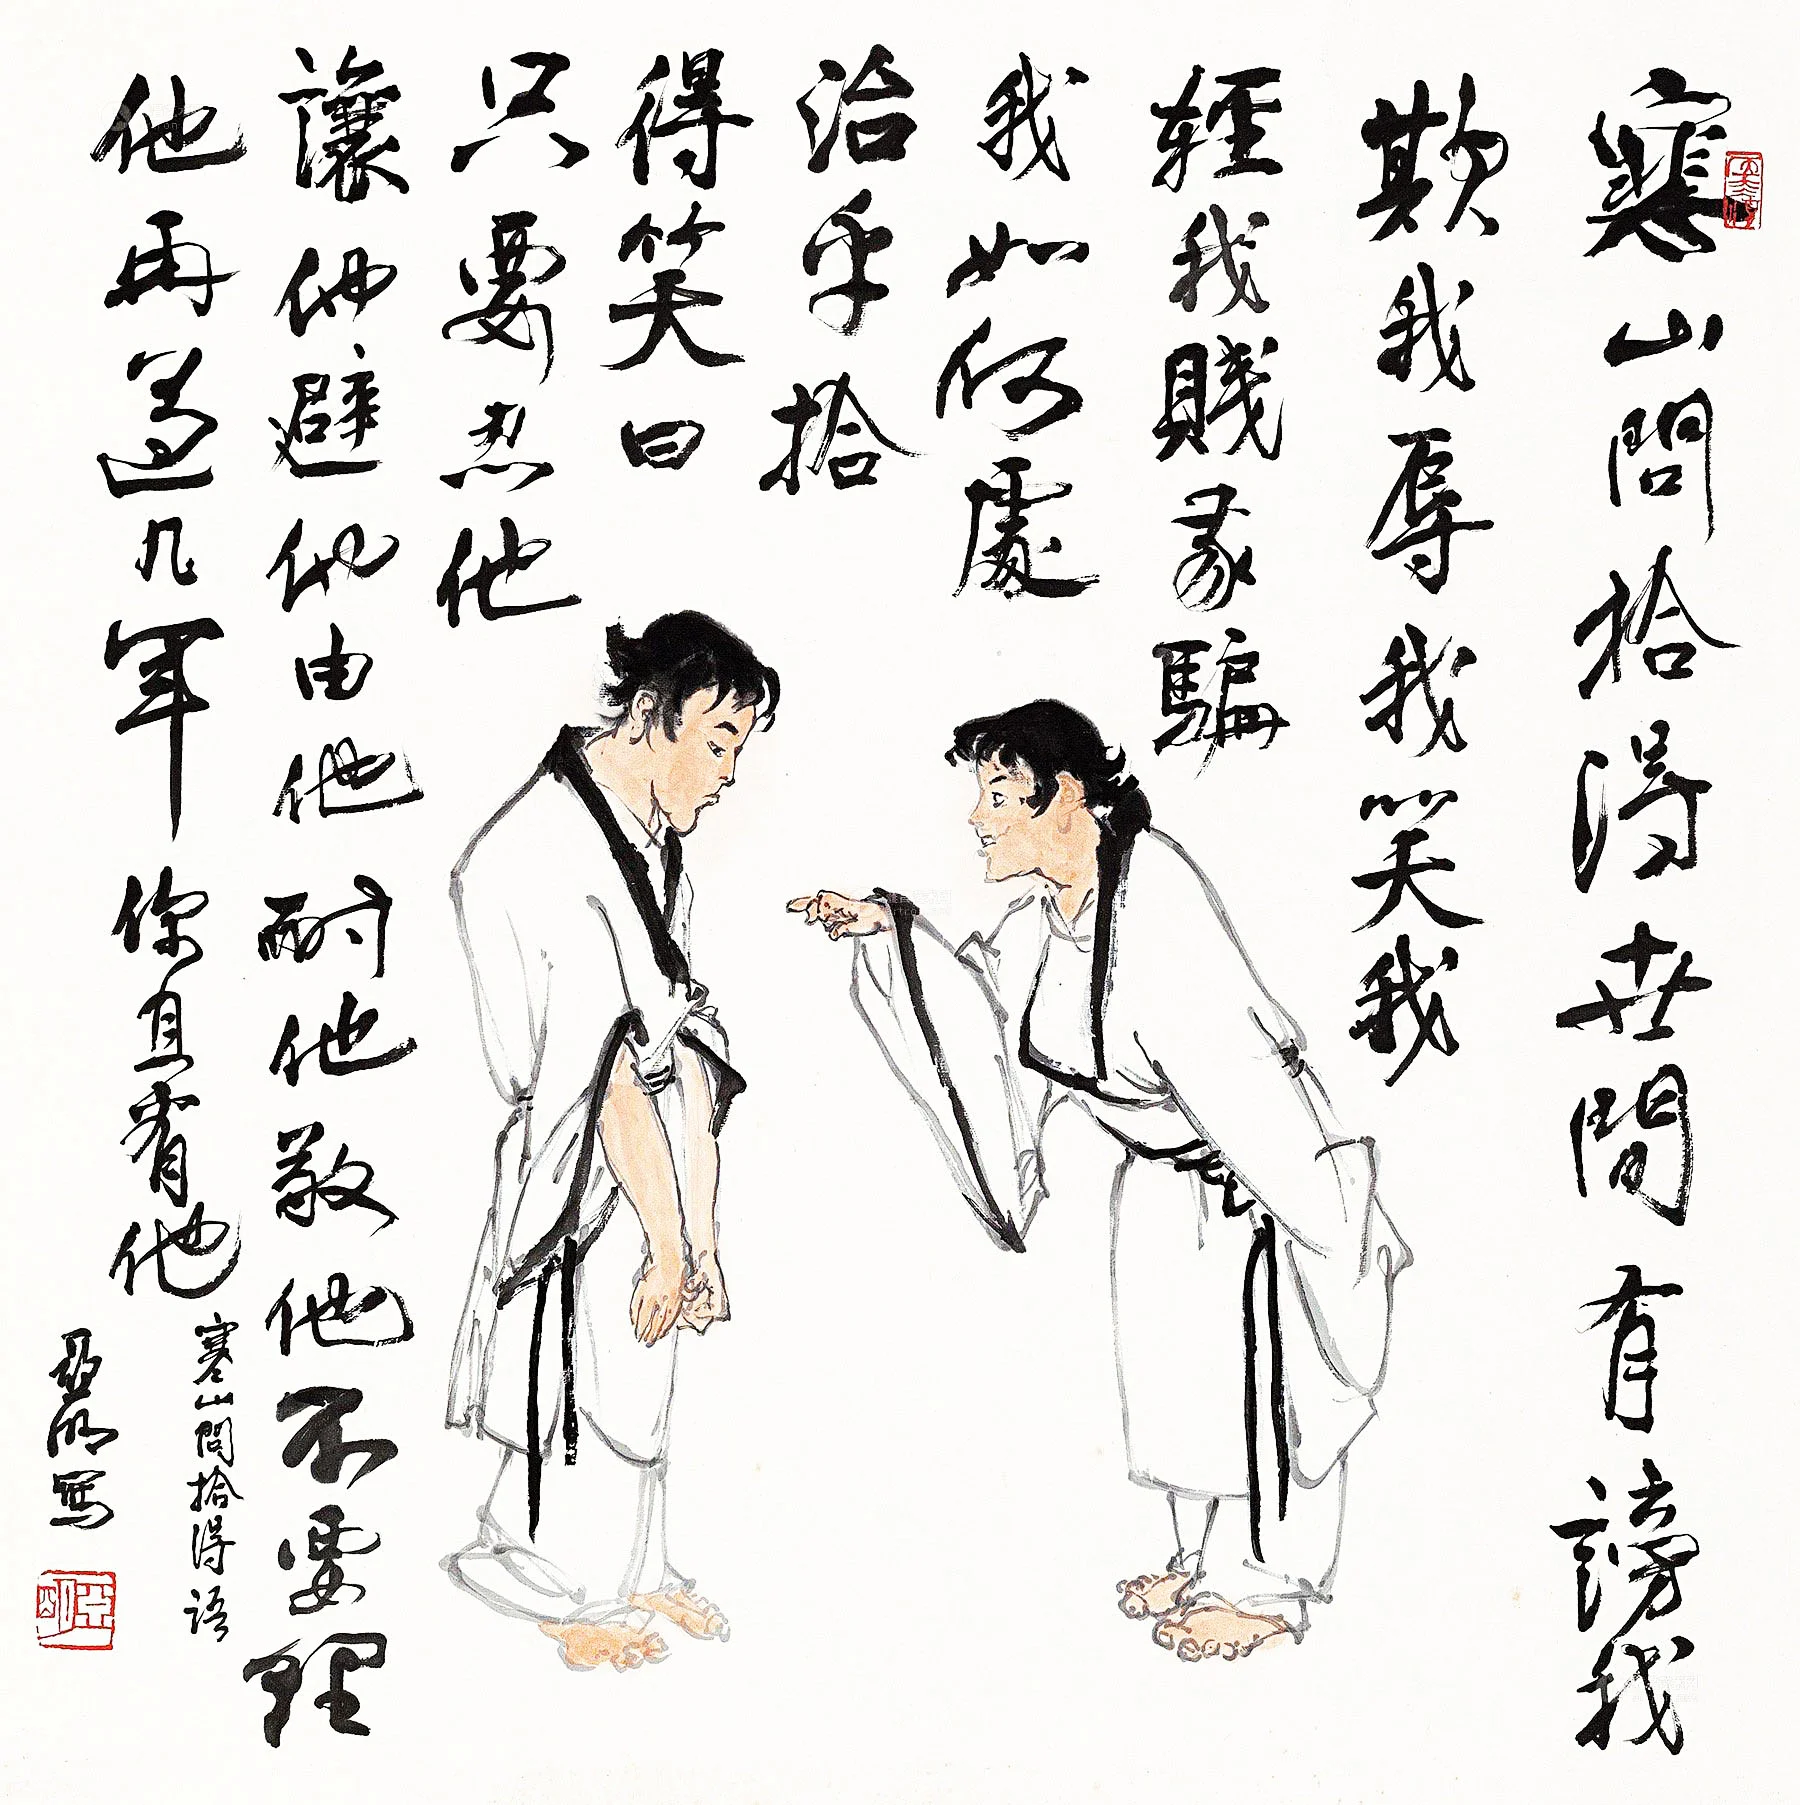 寒山問拾得世間有謗我
欺我辱我笑我
輕我賤騙
我如何處
治乎拾
得笑曰
只要忍他
讓他避他由他耐他敬他不要理
他再過几年你且看他
寒山問拾得語
亞明寫
亞明